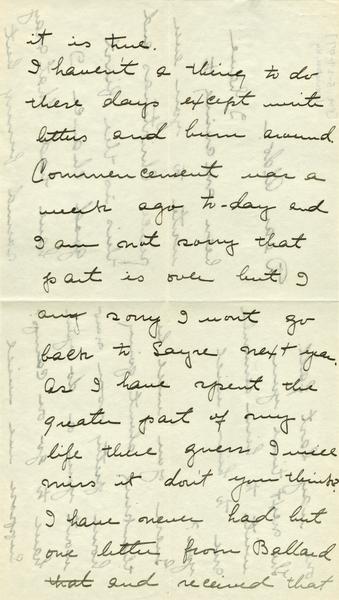 it is true.
I haven't a thing to do
these days except write
letters and bum around.
Commencement was a
week ago to-day and
I am not sorry that
part is over but I
am sorry I wont go
back to Sayre next year.
As I have spent the
greater part of my
life there guess I will
miss it don't you think?
I have never had but
one letter from Ballard
that and received that